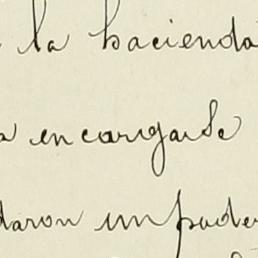 la hacienda
a encargarse
daron un poder